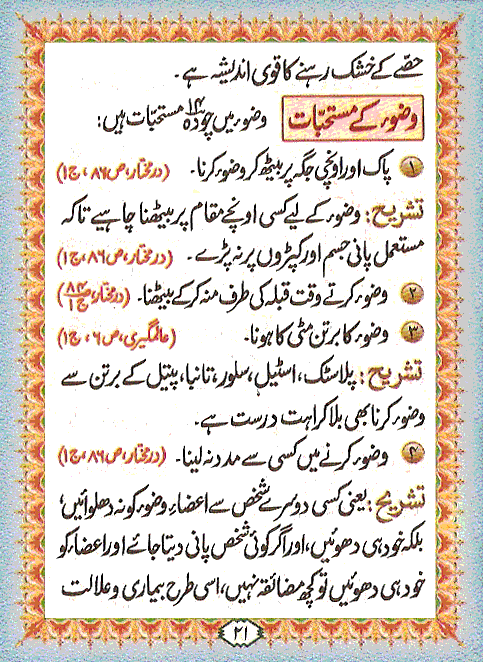 حصّے کے خشک رہنے کا قوی اندیشہ ہے۔
وضوء کے مستحبّات
وضوء میں چودہ ۱۴ مستحبّات ہیں:
۱ پاک اور اونچی جگہ پر بیٹھ کر وضوء کرنا۔ (در مختار، ص ۸۶، ج۱)
تشریح: وضوء کے لیے کسی اونچے مقام پر بیٹھنا چاہیے تاکہ
مستعمل پانی جسم اور کپڑوں پر نہ پڑے۔ (در مختار، ص ۸۶، ج۱)
۲ وضوء کرتے وقت قبلہ کی طرف منہ کر کے بیٹھنا۔ (در مختار، ص ۸۴ ج ۱)
۳ وضوء کا برتن مٹی کا ہونا۔ (عالمگیری، ص ۶، ج۱)
تشریح: پلاسٹک، اسٹیل، سلور، تانبا، پیتل کے برتن سے
وضوء کرنا بھی بلا کراہت درست ہے۔
۴ وضوء کرنے میں کسی سے مدد نہ لینا۔ (در مختار، ص ۸۶، ج۱)
تشریح: یعنی کسی دوسرے شخص سے اعضاءِ وضوء کو نہ دھلوائیں،
بلکہ خود ہی دھوئیں، اور اگر کوئی شخص پانی دیتا جائے اور اعضاء کو
خود ہی دھوئیں تو کچھ مضائقہ نہیں، اسی طرح بیماری و علالت
۲۱